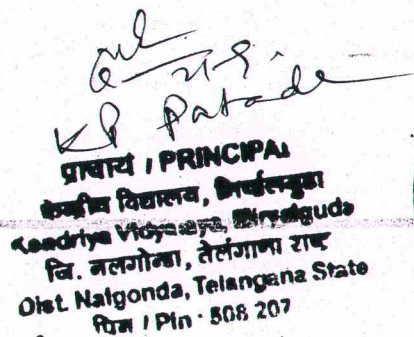 KP Patode
प्राचार्य / PRINCIPAL
केन्द्रीय विद्यालय, मिर्यालगुडा
Kendriya Vidyalaya, Miryalguda
जि. नलगोन्डा, तेलंगाणा राष्ट्र
Dist. Nalgonda, Telangana State
पिन / Pin - 508 207